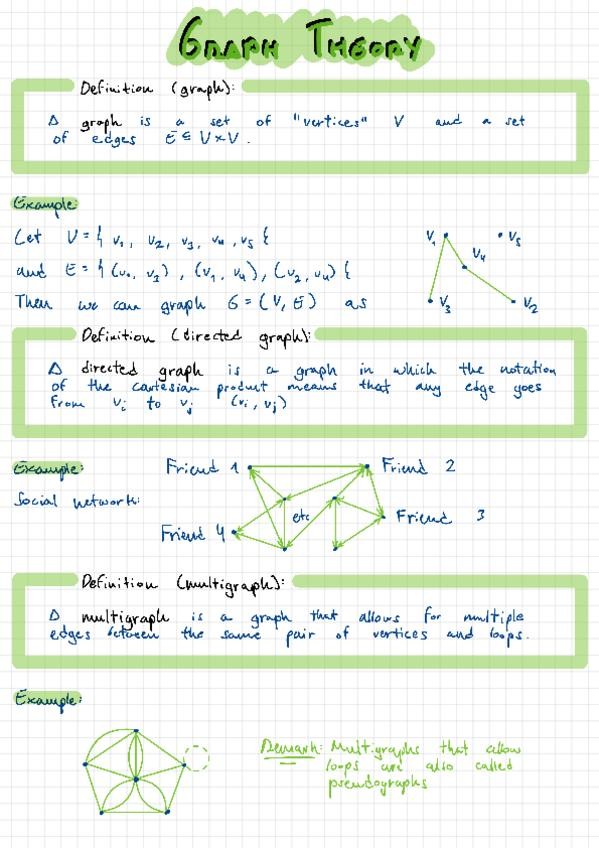 GRAPH THEORY
Definition (graph):
A graph is a set of "vertices" V and a set
of edges E ⊆ V×V.
Example:
Let V = { v₁, v₂, v₃, v₄, v₅ }
and E = { (v₁, v₃), (v₁, v₄), (v₂, v₄) }
Then we can graph G = (V, E) as
V₁
V₅
V₄
V₃
V₂
Definition (directed graph):
A directed graph is a graph in which the notation
of the cartesian product means that any edge goes
from vᵢ to vⱼ (vᵢ, vⱼ)
Example:
Social network:
Friend 1
Friend 2
etc
Friend 3
Friend 4
Definition (multigraph):
A multigraph is a graph that allows for multiple
edges between the same pair of vertices and loops.
Example:
Remark: Multigraphs that allow
loops are also called
pseudographs